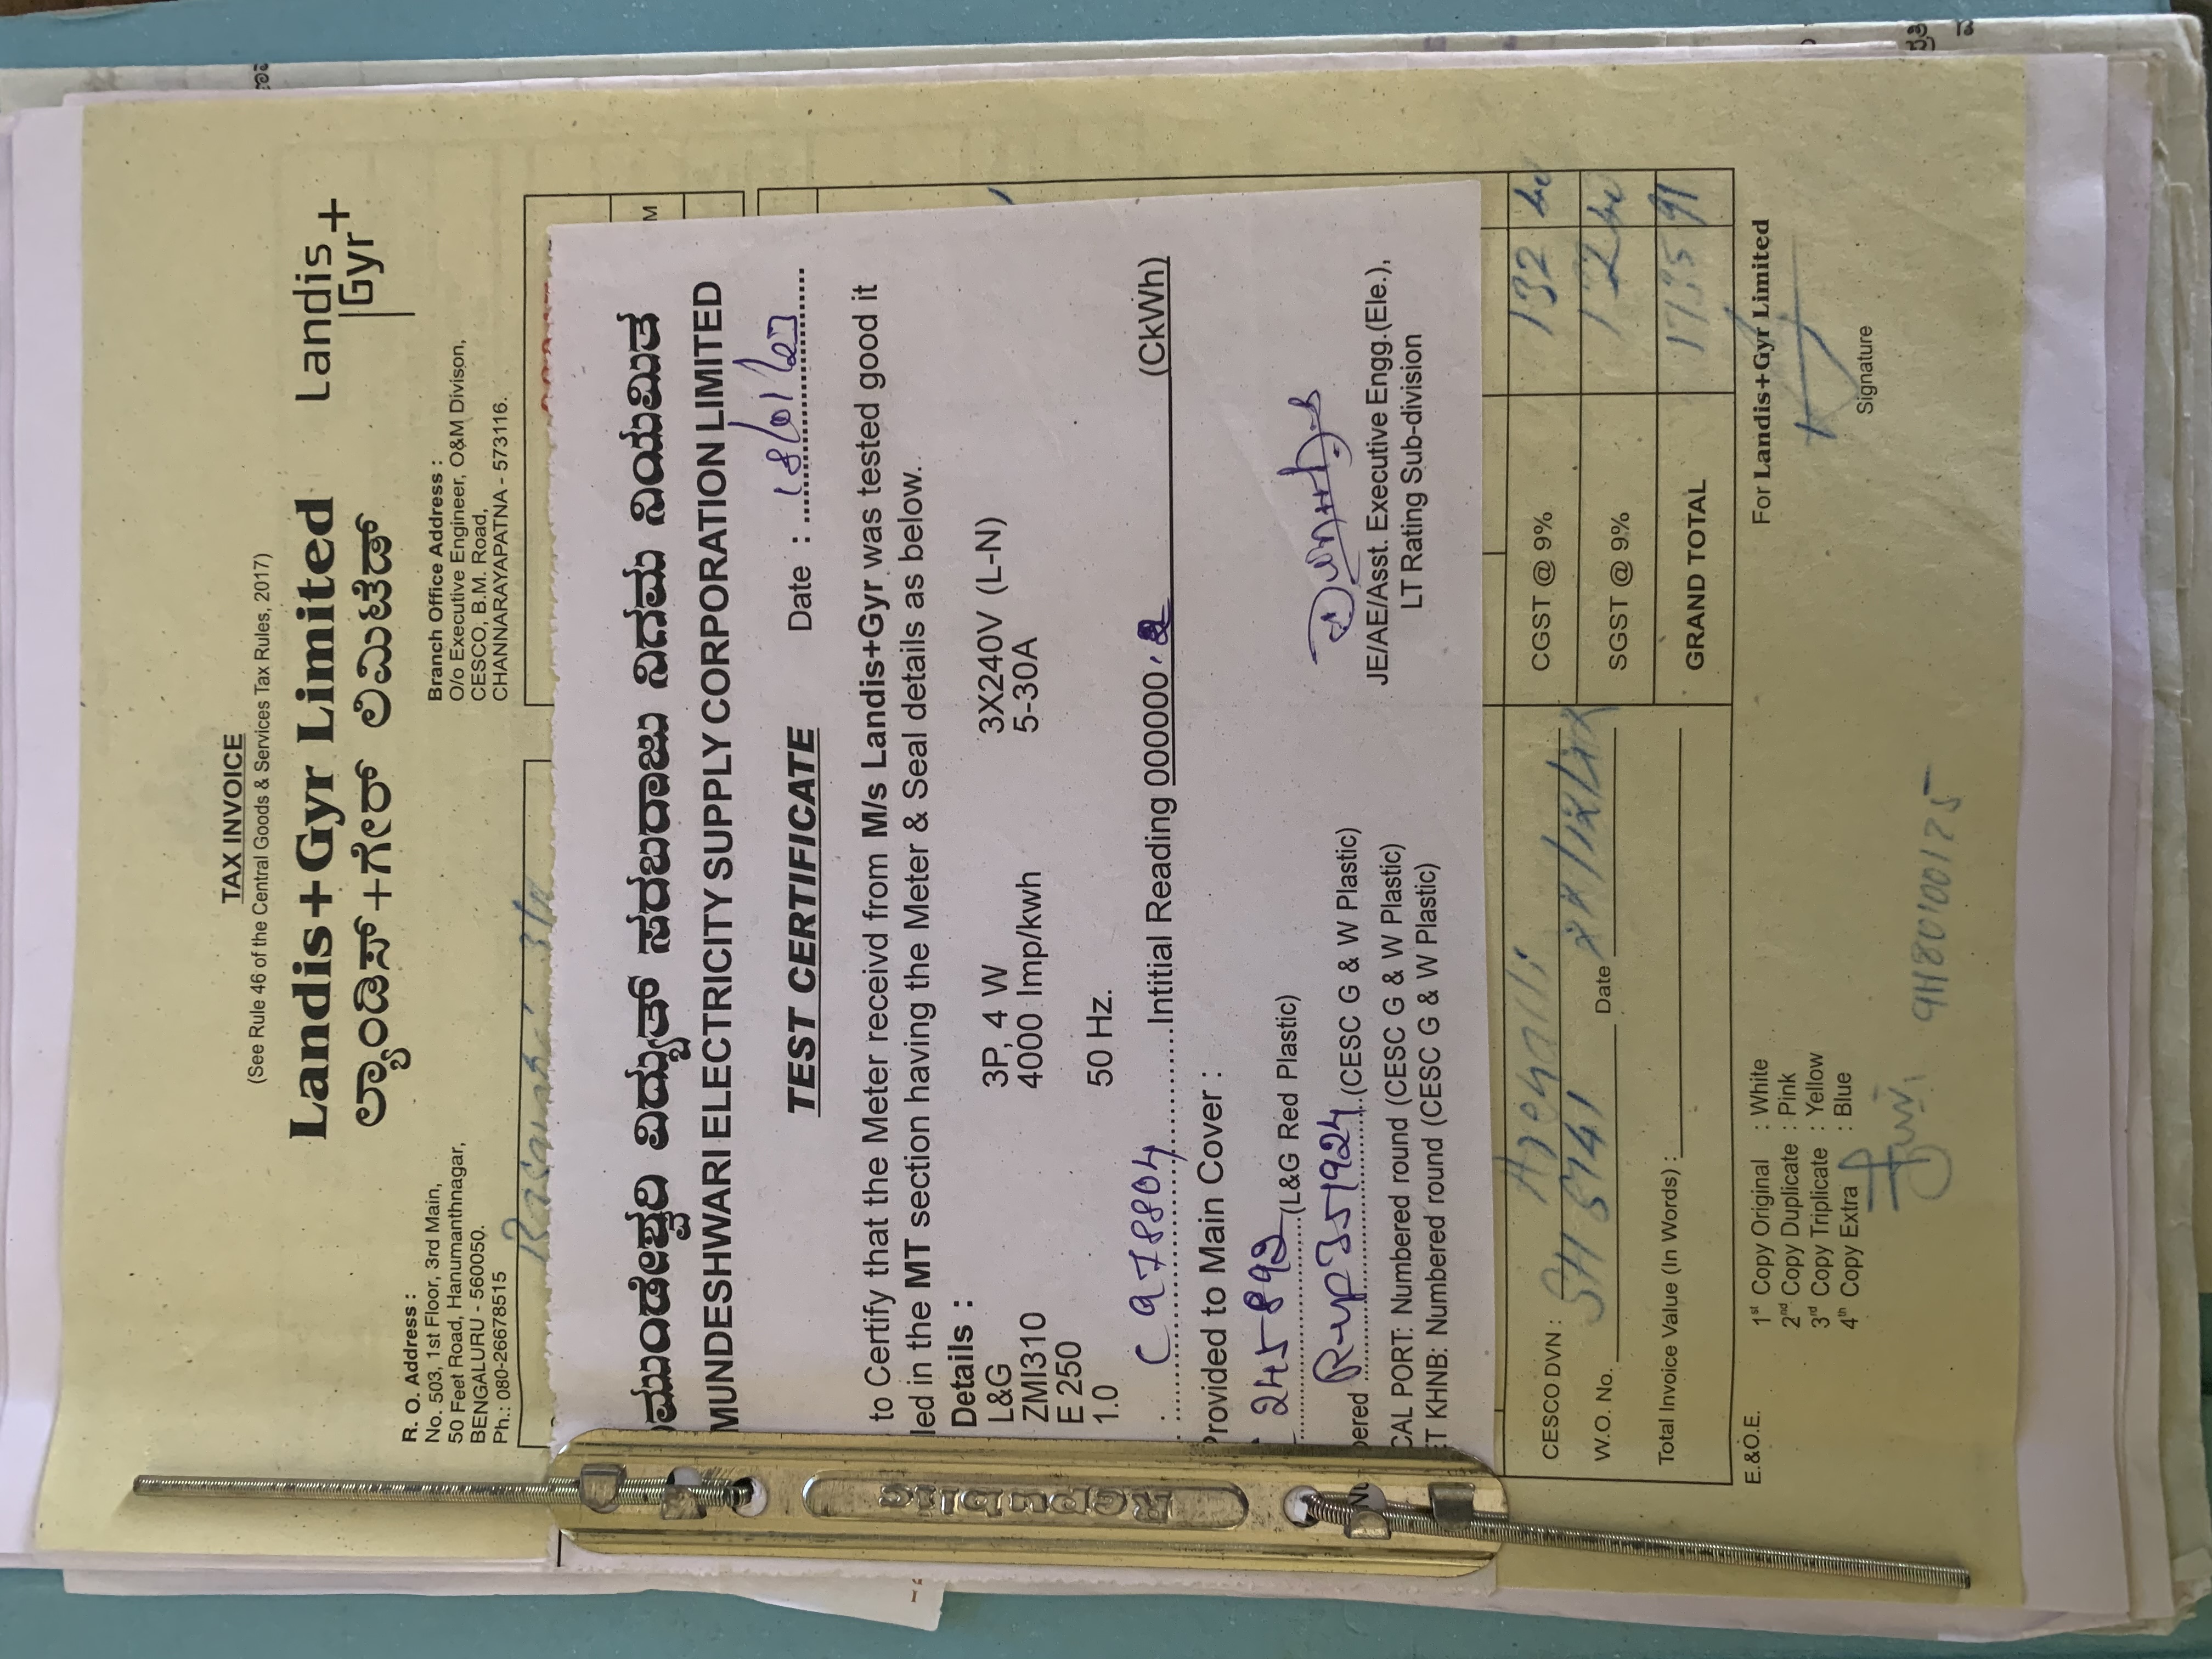 TAX INVOICE
(See Rule 46 of the Central Goods & Services Tax Rules, 2017)
Landis+Gyr Limited
ಲ್ಯಾಂಡಿಸ್+ಗೇರ್ ಲಿಮಿಟೆಡ್
Landis
Gyr+
R. O. Address :
No. 503, 1st Floor, 3rd Main,
50 Feet Road, Hanumanthnagar,
BENGALURU - 560050.
Ph.: 080-26678515
Branch Office Address :
O/o Executive Engineer, O&M Divison,
CESCO, B.M. Road,
CHANNARAYAPATNA - 573116.
M
ಮುಂಡೇಶ್ವರಿ ವಿದ್ಯುತ್ ಸರಬರಾಜು ನಿಗಮ ನಿಯಮಿತ
MUNDESHWARI ELECTRICITY SUPPLY CORPORATION LIMITED
TEST CERTIFICATE Date :
to Certify that the Meter receivd from M/s Landis+Gyr was tested good it
led in the MT section having the Meter & Seal details as below.
Details :
L&G 3P, 4 W 3X240V (L-N)
ZMI310 4000 Imp/kwh 5-30A
E 250
1.0 50 Hz.
C978804 Intitial Reading 000000. (CkWh)
Provided to Main Cover :
245892 (L&G Red Plastic)
bered (CESC G & W Plastic)
CAL PORT: Numbered round (CESC G & W Plastic)
ET KHNB: Numbered round (CESC G & W Plastic)
JE/AE/Asst. Executive Engg.(Ele.),
LT Rating Sub-division
CESCO DVN :
CGST @ 9% 132
W.O. No. Date
SGST @ 9% 132
Total Invoice Value (In Words) :
GRAND TOTAL 1735 91
E.&O.E.
For Landis+Gyr Limited
1st Copy Original : White
2nd Copy Duplicate : Pink
3rd Copy Triplicate : Yellow
4th Copy Extra : Blue
Signature